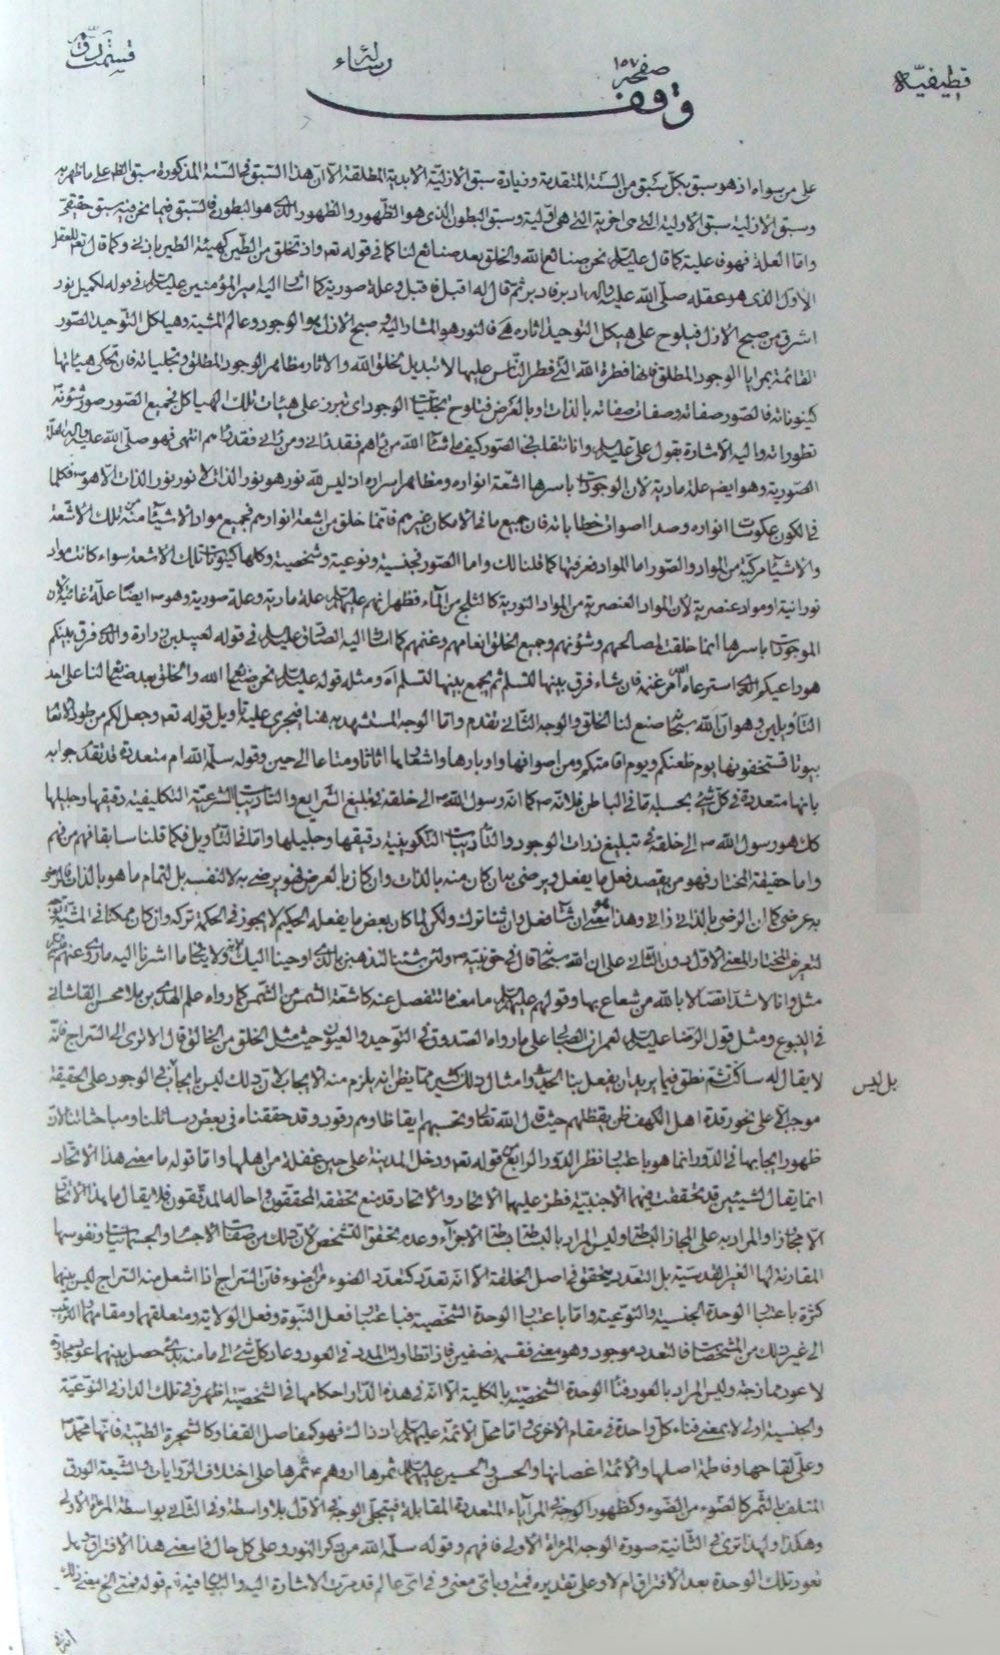 قطيفيّه
صفحه ١٥٧
رساله
قسمت
وقف
على من سواه اذ هو سبق بكل سبق من الستة المتقدمة وزيادة سبق الازلية الابدية المطلقة الا ان هذا السبق في الستة المذكورة سبق الظاهر على ما ظهر به
وسبق الازلية سبق الاولية التي هي اخرية التي هي اولية وسبق البطون الذي هو الظهور والظهور الذي هو البطون فالسبق فيما نحن فيه سبق حقيقي
واما العلة فهو فاعلية كما قال عليه السلم نحن صنائع الله والخلق بعد صنائع لنا كما في قوله تعم واذ تخلق من الطين كهيئة الطير باذني وكما قال تعم للعقل
الاول الذي هو عقله صلى الله عليه واله ادبر فادبر ثم قال له اقبل فاقبل وعلة صورية كما اشار اليه امير المؤمنين عليه السلم في قوله لكميل نور
اشرق من صبح الازل فيلوح على هياكل التوحيد اثاره فالنور هو المشار اليه وصبح الازل هو الوجود وعالم المشية وهياكل التوحيد الصور
القائمة بمرايا الوجود المطلق فانها فطرة الله التي فطر الناس عليها لا تبديل لخلق الله والاثار مظاهر الوجود المطلق وتجلياته فان تحكى هيئاتها
كينوناته فالصور صفاته وصفات صفاته بالذات او بالعرض فتلوح تجليات الوجود اي تبرز على هيئات تلك الهياكل فجميع الصور صور شئونه
تطوراته واليه الاشارة بقول علي عليه السلم وانا نتقلب في الصور كيف ما شاء الله من راهم فقد راني ومن راني فقد راهم انتهى فهو صلى الله عليه واله العلة
الصورية وهو ايضا علة مادية لان الموجودات باسرها اشعة انواره ومظاهر اسراره اذ ليس لله نور هو نور الذات الا نور نور الذات الا هو فكلما
في الكون عكوسات انواره وصدا اصوات خطاباته فان جميع ما في الامكان غيرهم فانما خلق من اشعة انوارهم فجميع مواد الاشياء من تلك الاشعة
والاشياء مركبة من المواد والصور اما المواد فعرفتها كما قلنا لك واما الصور فجنسية ونوعية وشخصية وكلها كينونات تلك الاشعة سواء كانت مواد
نورانية او مواد عنصرية لان المواد العنصرية من المواد النورية كالثلج من الماء فظهر انهم عليهم السلم علة مادية وعلة صورية وهو ايضا علة غائية لان
الموجودات باسرها انما خلقت لمصالحهم وشئونهم وجميع الخلق انعامهم وغنمهم كما اشار اليه الصادق عليه السلم في قوله لعبيد بن زرارة والذي فرق بينكم
هو راعيكم الذي استرعاه الله امر غنمه فان شاء فرق بينها لتسلم ثم يجمع بينها لتسلم اه ومثله قوله عليه السلم نحن صنائع الله والخلق بعد صنائع لنا على احد
التأويلين وهو ان الله سبحانه صنع لنا الخلق والوجه الثاني تقدم واما الوجه المستشهد به هنا فجرى عليه تأويل قوله تعم وجعل لكم من جلود الانعام
بيوتا تستخفونها يوم ظعنكم ويوم اقامتكم ومن اصوافها واوبارها واشعارها اثاثا ومتاعا الى حين وقوله سلمه الله ام متعددة قد تقدم جوابه
بانها متعددة في كل شيء بحسبه اما في الباطن فلانه كما انه رسول الله الى خلقه في تبليغ الشرايع والتأديبات الشرعية التكليفية دقيقها وجليلها
كك هو رسول الله الى خلقه في تبليغ ذرات الوجود والتأديبات التكوينية دقيقها وجليلها واما في التأويل فكما قلنا سابقا فهم من فهم
واما حقيقة المختار فهو من يقصد فعل ما يفعل ويرضى بان كان منه بالذات وان كان بالعرض فهو يرضى به لا لنفسه بل لتمام ما هو بالذات فالرضى
به عرضي كما ان الرضى بالذاتي ذاتي وهذا هو معنى ان شاء فعل وان شاء ترك ولكن لما كان بعض ما يفعله الحكيم لا يجوز في الحكمة تركه وان كان ممكنا في المشية
المختار المعنى الاول دون الثاني على ان الله سبحانه قال في حق نبيه ولئن شئنا لنذهبن بالذي اوحينا اليك ولا ينافي ما اشرنا اليه ما روى عنهم
مثل وانا لاشد اتصالا بالله من شعاع بها وقولهم عليهم السلم ما معناه تنفصل عنه كاشعة الشمس من الشمس كما رواه علم الهدى بن ملا محسن القاشاني
في الينبوع ومثل قول الرضا عليه السلم لعمران الصابي على ما رواه الصدوق في التوحيد والعيون حيث مثل الخلق من الخالق قال الا ترى الى السراج فانه
لا يقال له ساكت ثم نطق فيما يريد ان يفعل بنا الحديث وامثال ذلك كثير مما يظن انه يلزم منه الايجاب لان ذلك ليس بايجاب في الوجود على الحقيقة
بل ليس
موجب الا على نحو رقدة اهل الكهف ظن يقظتهم حيث قال الله تعالى وتحسبهم ايقاظا وهم رقود وقد حققناه في بعض رسائلنا ومباحثاتنا لان
ظهور ايجابها في الدور انما هو باعتبار نظر الدور الرابع قوله تعم ودخل المدينة على حين غفلة من اهلها واما قوله ما معنى هذا الاتحاد
انما يقال لشيئين قد تحققت فيهما الاجنبية فطرء عليهما الاتحاد والاتحاد قد منع تحققه المحققون واحاله المدققون فلا يقال ما هذا الاتحاد
الا مجازا والمراد به على المجاز البساطة وليس المراد بالبساطة بساطة الاجزاء وعدم تحقق التشخص لان ذلك من صفات الاجسام والجسمانيات ونفوسها
المقارنة لها الغير القدسية بل التعدد متحقق في اصل الخلقة الا انه تعدد كتعدد الضوء من الضوء فان السراج اذا اشعل منه السراج ليس بينهما
كثرة باعتبار الوحدة الجنسية والنوعية واما باعتبار الوحدة الشخصية فباعتبار فعل النبوة وفعل الولاية ومتعلقهما ومقامهما الترتيب
الى غير ذلك من المشخصات فالتعدد موجود وهو معنى فقسمه نصفين فاذا تطاولت المدد في العود وعاد كل شيء الى ما منه بدئ حصل بينهما عود مجاورة
لا عود ممازجة وليس المراد بالعود فناء الوحدة الشخصية بالكلية الا انه في هذه الدار احكامها في الشخصية اظهر وفي تلك الدار في النوعية
والجنسية اولى لا بمعنى فناء كل واحدة في مقام الاخرى واما محل الائمة عليهم السلم اذ ذاك فهو كمفاصل القفا وكالشجرة الطيبة فانها محمد
وعلي لقاحها وفاطمة اصلها والائمة اغصانها والحسن والحسين عليهما السلم ثمرها او هم ثمرها على اختلاف الروايات والشيعة الورق
الملتف بالثمر كالضوء من الضوء وكظهور الوجه في المراياء المتعددة المقابلة فيتجلى الوجه في الاول بلا واسطة وفي الثاني بواسطة المراة الاولى
وهكذا ولهذا ترى في الثانية صورة الوجه المراة الاولى فافهم وقوله سلمه الله من ذكر النور وعلى كل حال فما معنى هذا الافتراق وهل
تعود تلك الوحدة بعد الافتراق ام لا وعلى تقديره فمتى وباي معنى وفي اي عالم قد مرت الاشارة اليه والبيان فيه ثم قوله فمتى الخ معنى ذلك